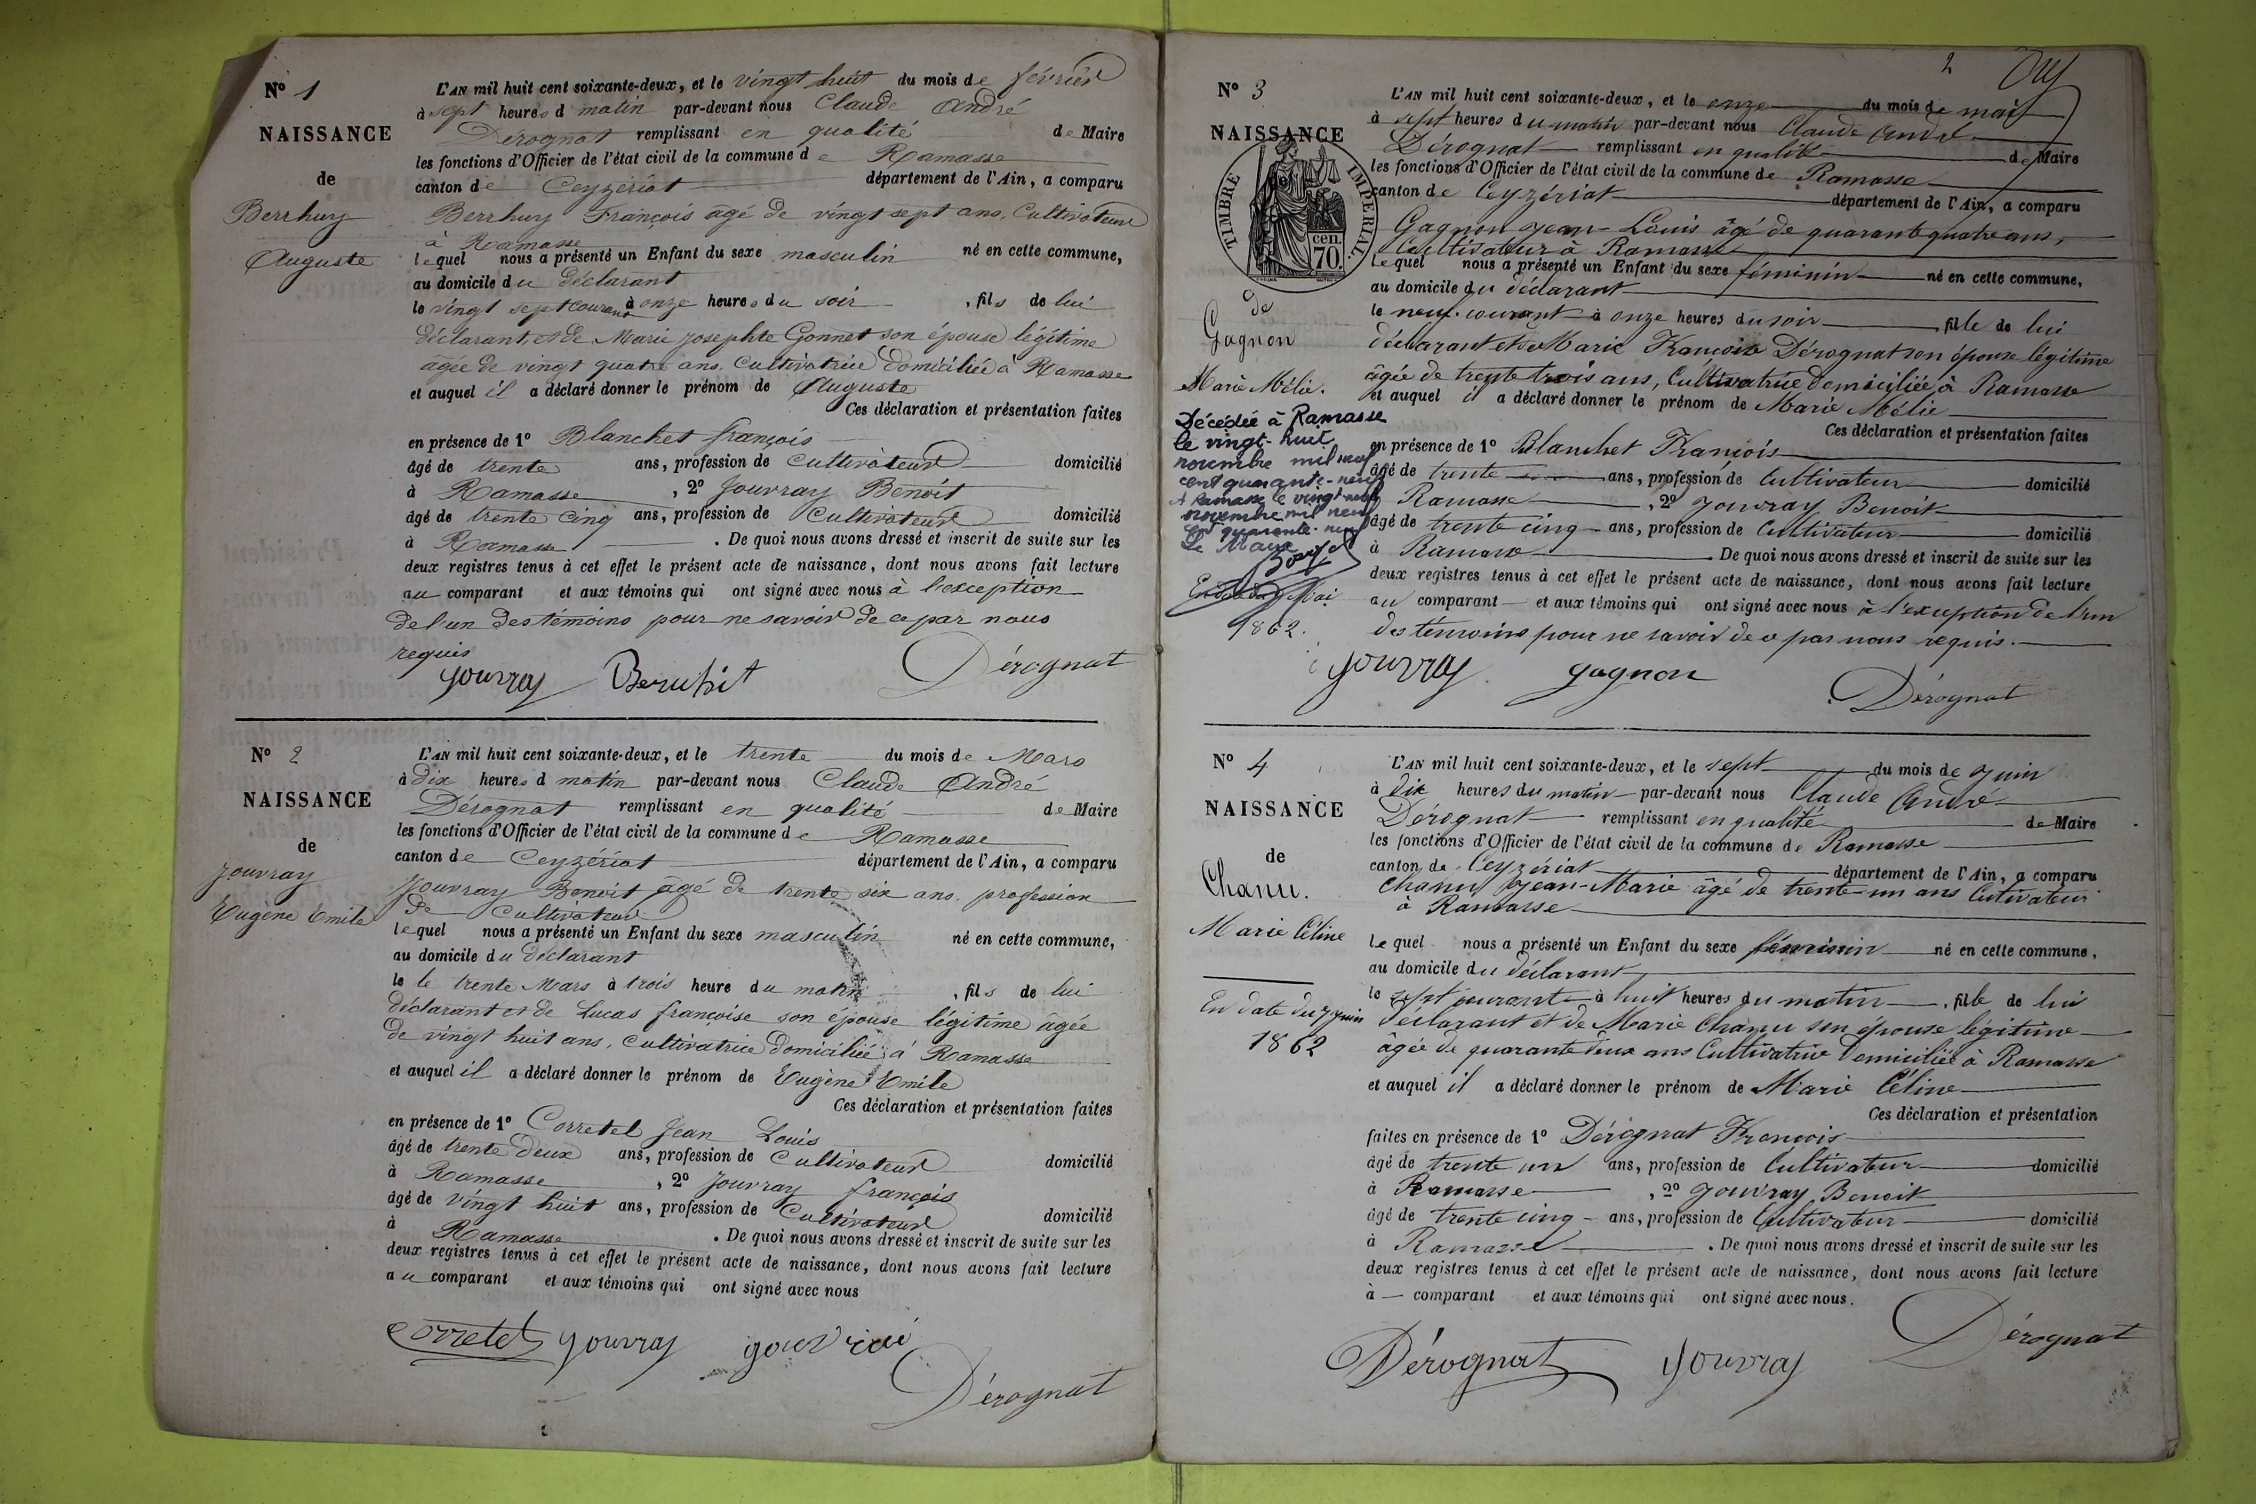 N° 1
NAISSANCE
de
Berrhuy
Auguste
L'AN mil huit cent soixante-deux, et le vingt huit du mois de février
à sept heures d matin par-devant nous Claude André
Dérognat remplissant en qualité de Maire
les fonctions d'Officier de l'état civil de la commune de Ramasse
canton de Ceyzériat département de l'Ain, a comparu
Berrhuy François âgé de vingt sept ans, Cultivateur
à Ramasse
lequel nous a présenté un Enfant du sexe masculin né en cette commune,
au domicile du déclarant
le vingt sept courant à onze heures du soir , fils de lui
déclarant et de Marie Josephte Gonnet son épouse légitime
âgée de vingt quatre ans. Cultivatrice domiciliée à Ramasse
et auquel il a déclaré donner le prénom de Auguste
Ces déclaration et présentation faites
en présence de 1° Blanchet françois
âgé de trente ans, profession de Cultivateur domicilié
à Ramasse , 2° Jouvray Benoit
âgé de trente cinq ans, profession de Cultivateur domicilié
à Ramasse . De quoi nous avons dressé et inscrit de suite sur les
deux registres tenus à cet effet le présent acte de naissance, dont nous avons fait lecture
au comparant et aux témoins qui ont signé avec nous à l'exception
de l'un des témoins pour ne savoir de ce par nous
requis
Jouvray Beruhit Dérognat
N° 2
NAISSANCE
de
Jouvray
Eugène Emile
L'AN mil huit cent soixante-deux, et le trente du mois de Mars
à dix heures d matin par-devant nous Claude André
Dérognat remplissant en qualité de Maire
les fonctions d'Officier de l'état civil de la commune de Ramasse
canton de Ceyzériat département de l'Ain, a comparu
Jouvray Benoit âgé de trente six ans. profession
de Cultivateur
lequel nous a présenté un Enfant du sexe masculin né en cette commune,
au domicile du déclarant
le le trente Mars à trois heure du matin , fils de lui
déclarant et de Lucas françoise son épouse légitime âgée
de vingt huit ans, Cultivatrice domiciliée à Ramasse
et auquel il a déclaré donner le prénom de Eugène Emile
Ces déclaration et présentation faites
en présence de 1° Corretel Jean Louis
âgé de trente deux ans, profession de Cultivateur domicilié
à Ramasse , 2° Jouvray françois
âgé de vingt huit ans, profession de Cultivateur domicilié
à Ramasse . De quoi nous avons dressé et inscrit de suite sur les
deux registres tenus à cet effet le présent acte de naissance, dont nous avons fait lecture
au comparant et aux témoins qui ont signé avec nous
Corretel Jouvray
Dérognat
2
N° 3
NAISSANCE
TIMBRE IMPERIAL.
cen.
70.
de
Gagnon
Marie Mélie.
Décédée à Ramasse
le vingt-huit
novembre mil neuf
cent quarante-neuf
A Ramasse le vingt-neuf
novembre mil neuf
cent quarante-neuf
Le Maire
En date du Mai
1862.
L'AN mil huit cent soixante-deux, et le onze du mois de mai
à sept heures du matin par-devant nous Claude André
Dérognat remplissant en qualité de Maire
les fonctions d'Officier de l'état civil de la commune de Ramasse
canton de Ceyzériat département de l'Ain, a comparu
Gagnon Jean-Louis âgé de quarante quatre ans,
Cultivateur à Ramasse
lequel nous a présenté un Enfant du sexe féminin né en cette commune,
au domicile du déclarant
le neuf courant à onze heures du soir fille de lui
déclarant et de Marie Françoise Dérognat son épouse légitime
âgée de trente trois ans, Cultivatrice domiciliée à Ramasse
et auquel il a déclaré donner le prénom de Marie Mélie
Ces déclaration et présentation faites
en présence de 1° Blanchet François
âgé de trente ans, profession de Cultivateur domicilié
à Ramasse , 2° Jouvray Benoit
âgé de trente cinq ans, profession de Cultivateur domicilié
à Ramasse . De quoi nous avons dressé et inscrit de suite sur les
deux registres tenus à cet effet le présent acte de naissance, dont nous avons fait lecture
au comparant et aux témoins qui ont signé avec nous à l'exception de l'un
des témoins pour ne savoir de ce par nous requis.
Jouvray gagnon
Dérognat
N° 4
NAISSANCE
de
Chanu.
Marie Céline
En date du 7 juin
1862
L'AN mil huit cent soixante-deux, et le sept du mois de Juin
à dix heures du matin par-devant nous Claude André
Dérognat remplissant en qualité de Maire
les fonctions d'Officier de l'état civil de la commune de Ramasse
canton de Ceyzériat département de l'Ain, a comparu
Chanu Jean-Marie âgé de trente-un ans Cutivateur
à Ramasse
lequel nous a présenté un Enfant du sexe féminin né en cette commune,
au domicile du déclarant
le sept courant à huit heures du matin , fille de lui
déclarant et de Marie Chanu son épouse légitime
âgée de quarante deux ans Cultivatrice domiciliée à Ramasse
et auquel il a déclaré donner le prénom de Marie Céline
Ces déclaration et présentation
faites en présence de 1° Dérognat François
âgé de trente un ans, profession de Cultivateur domicilié
à Ramasse , 2° Jouvray Benoit
âgé de trente cinq ans, profession de Cultivateur domicilié
à Ramasse . De quoi nous avons dressé et inscrit de suite sur les
deux registres tenus à cet effet le présent acte de naissance, dont nous avons fait lecture
à — comparant et aux témoins qui ont signé avec nous.
Dérognat Jouvray Dérognat